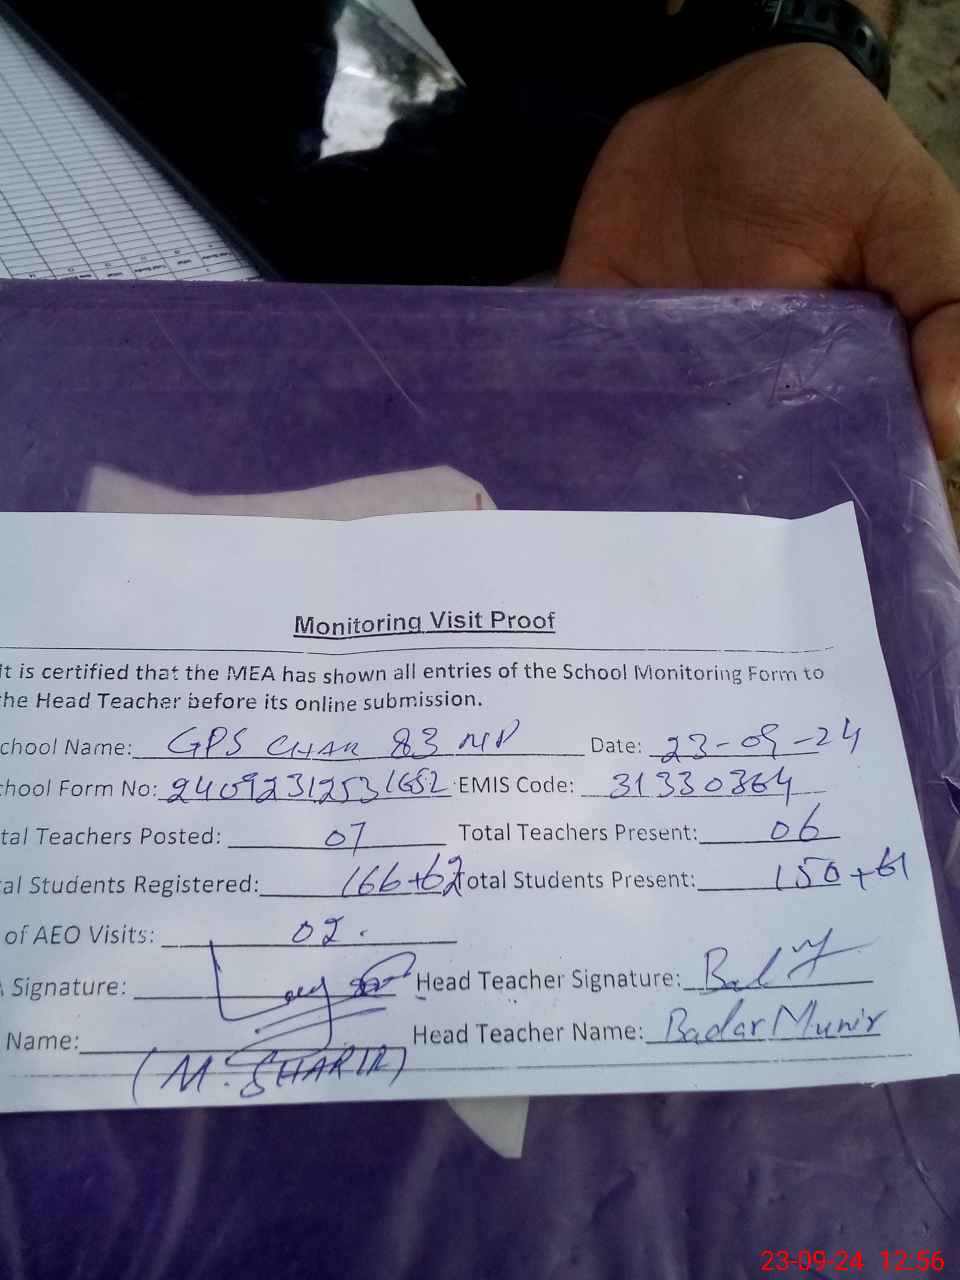 Monitoring Visit Proof
It is certified that the MEA has shown all entries of the School Monitoring Form to
the Head Teacher before its online submission.
chool Name: GPS CHAK 83 NP Date: 23-09-24
chool Form No: 24092312531652 EMIS Code: 31330364
tal Teachers Posted: 07 Total Teachers Present: 06
al Students Registered: 166+62 Total Students Present: 150+61
of AEO Visits: 02.
Signature: Head Teacher Signature:
Name: Head Teacher Name: Badar Munir
(M.
23-09-24 12:56